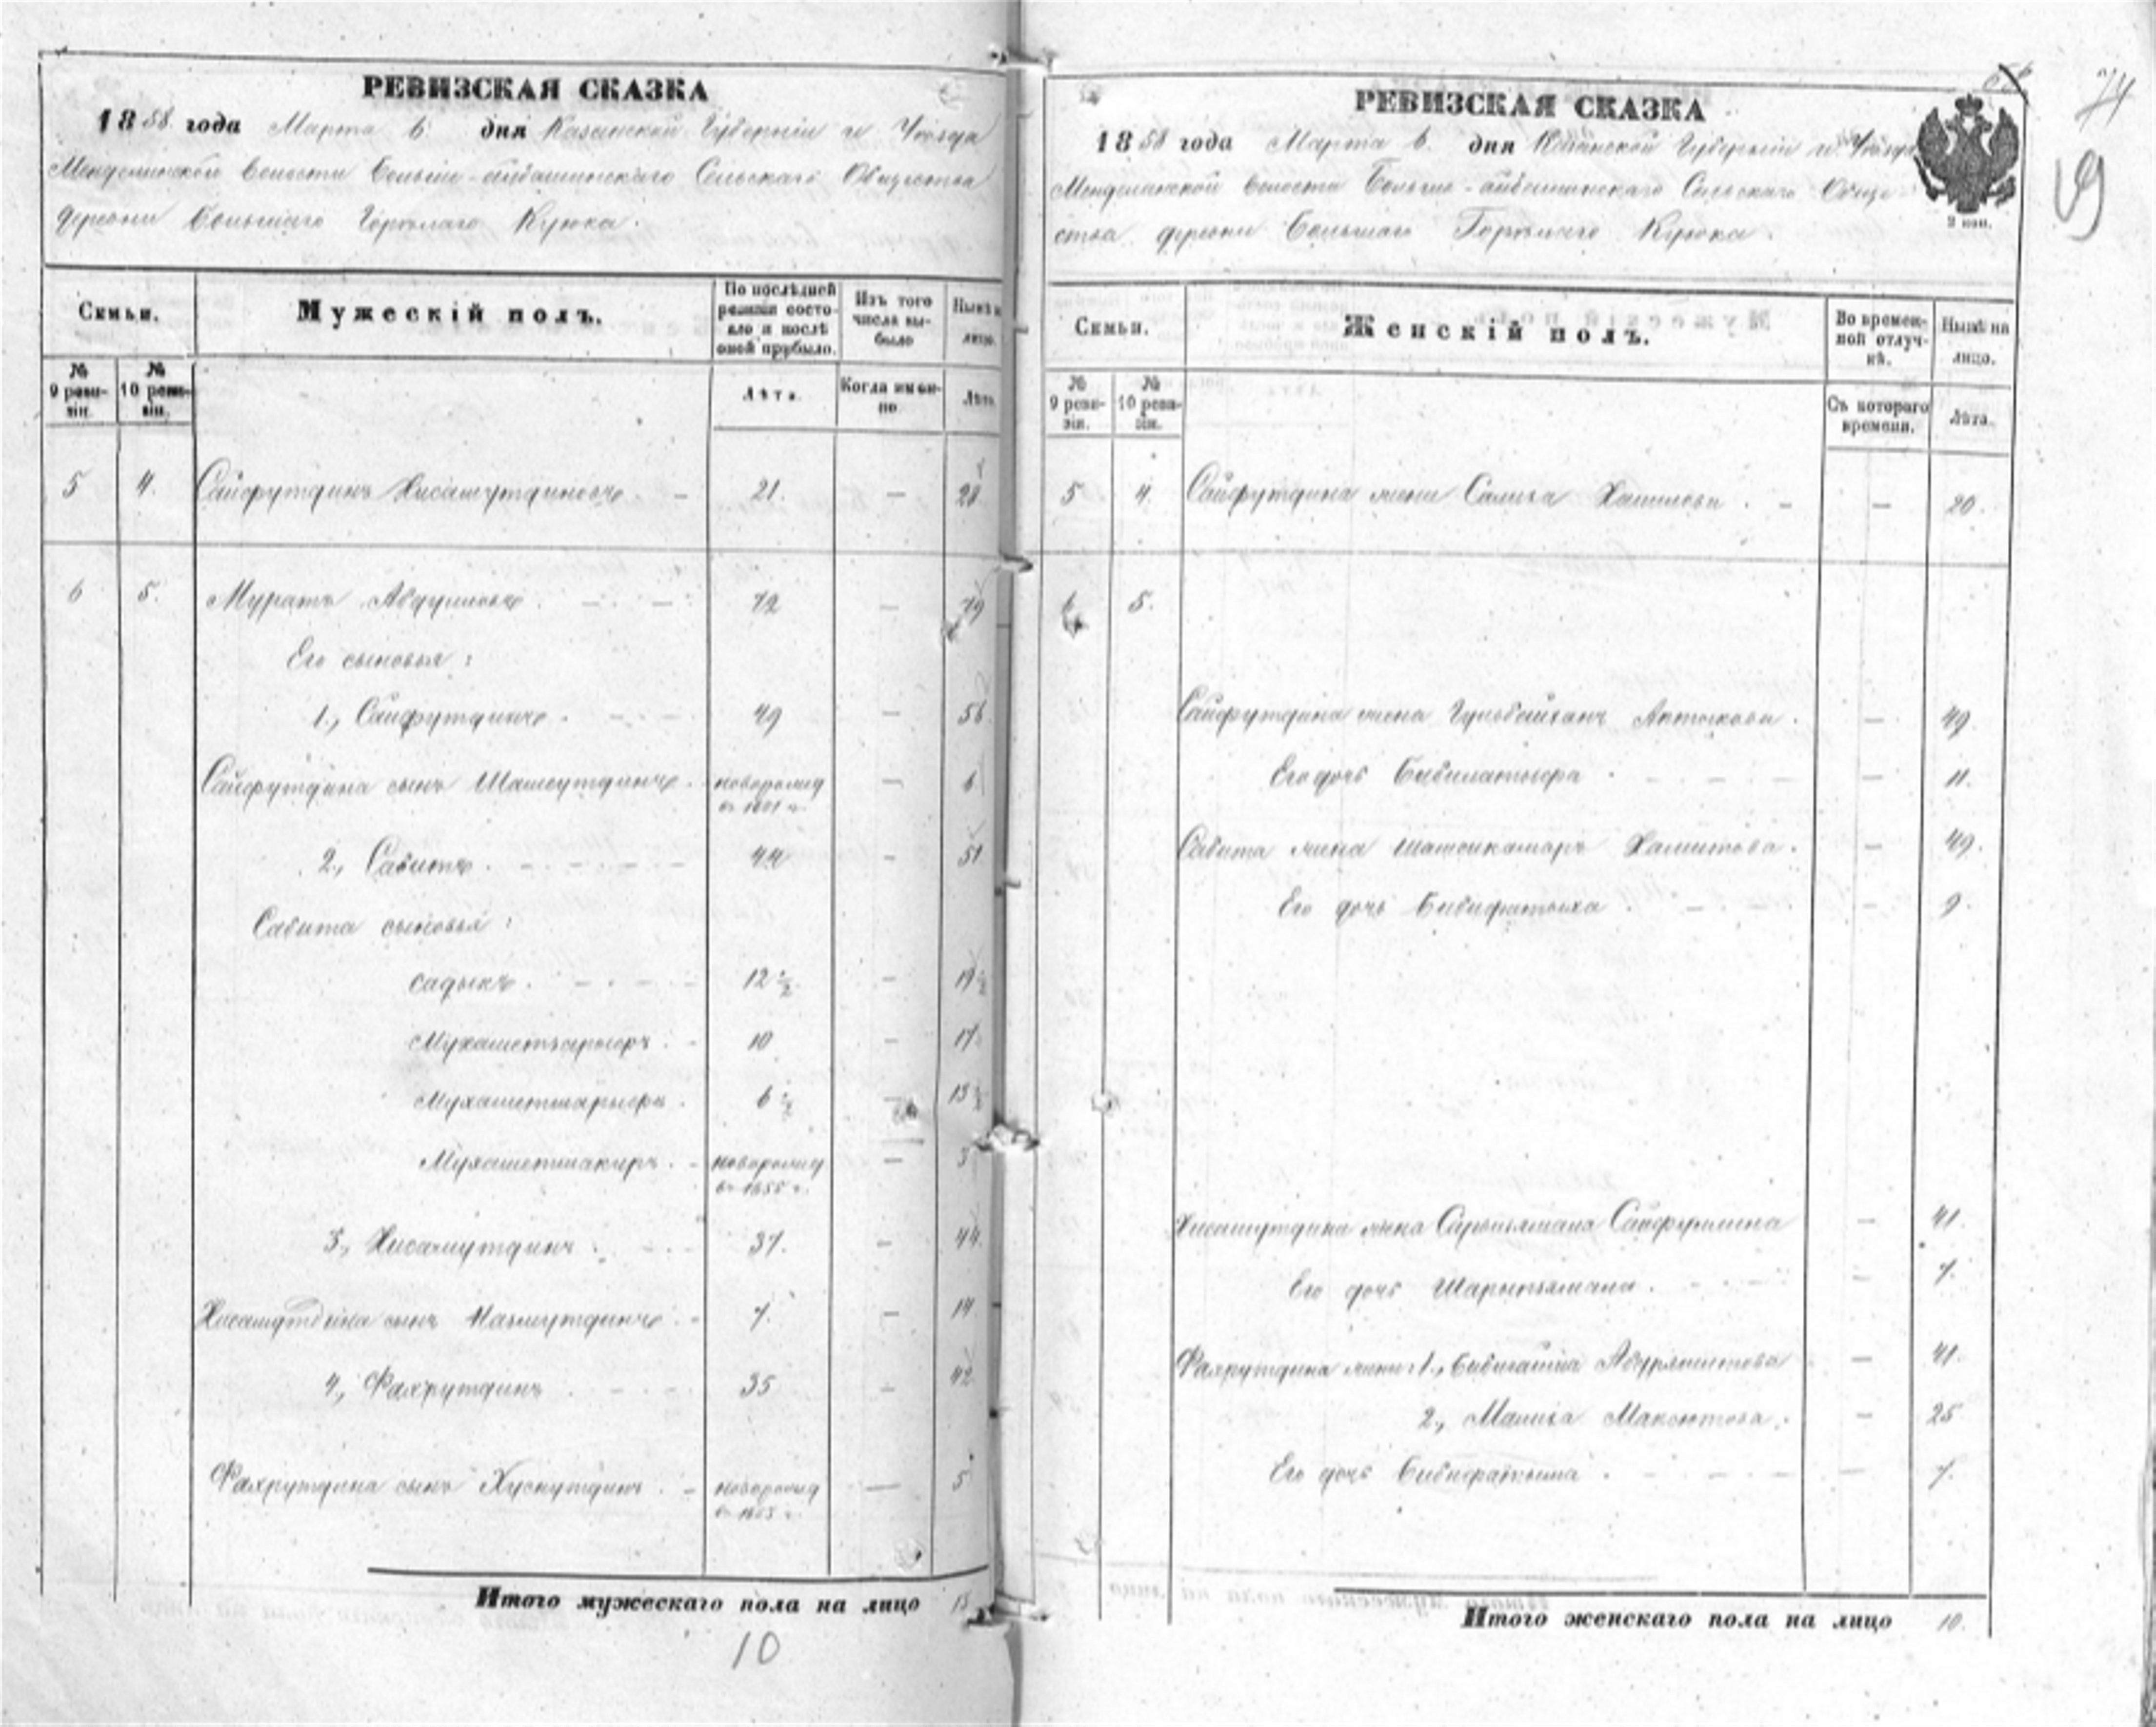 РЕВИЗСКАЯ СКАЗКА
1858 года Марта 6 дня Казанской Губерніи и Уѣзда
Менделинской волости Больше-айбашинскаго Сельскаго Общества
деревни Большаго Горѣлаго Куюка.
Семьи.
Мужескій полъ.
По послѣдней ревизіи состояло и послѣ оной прибыло.
Изъ того числа выбыло
Нынѣ на лицо.
№ 9 ревизіи.
№ 10 ревизіи.
Лѣта.
Когда именно
Лѣта.
5 4. Сайфутдинъ Хисамутдиновъ. - 21. - 28
6 5. Муратъ Абдулловъ. 72 - 79
Его сыновья:
1., Сайфутдинъ. 49 - 56
Сайфутдина сынъ Шамсутдинъ. новорожд - 6
въ 1851 г.
2., Сабитъ. 44 - 51
Сабита сыновья:
садыкъ. 12 1/2 - 19 1/2
Мухаметь 10 - 17
Мухамет 6 1/2 - 13 1/2
Мухаметшакиръ. новорожд - 3
въ 1855 г.
3., Хисамутдинъ. 37. - 44.
Хисамутдина сынъ 7. - 14
4., Фахрутдинъ 35 - 42
Фахрутдина сынъ Хуснутдинъ. - новорожд - 5
въ 1853 г.
Итого мужескаго пола на лицо 13
10
РЕВИЗСКАЯ СКАЗКА
1858 года Марта 6. дня Казанской Губерніи и Уѣзда
Менделинской волости Больше-айбашинскаго Сельскаго Обще-
ства деревни Большаго Горѣлаго Куюка.
2 коп.
74
Семьи.
Женскій полъ.
Во временной отлучкѣ.
Нынѣ на лицо.
№ 9 ревизіи.
№ 10 ревизіи.
Съ котораго времени.
Лѣта.
5 4. Сайфутдина жена Салиха - - 20.
6 5.
Сайфутдина жена Гульбайханъ - 49.
Его дочь - 11.
Сабита жена Шамсикамаръ Хамитова. - 49.
Его дочь Бибифатыха - 9.
Хисамутдина жена Сайфуллина - 41.
Его дочь - 7.
Фахрутдина жены 1., - 41.
2., Малиха - 25
Его дочь Бибифатыма - 7.
Итого женскаго пола на лицо 10.